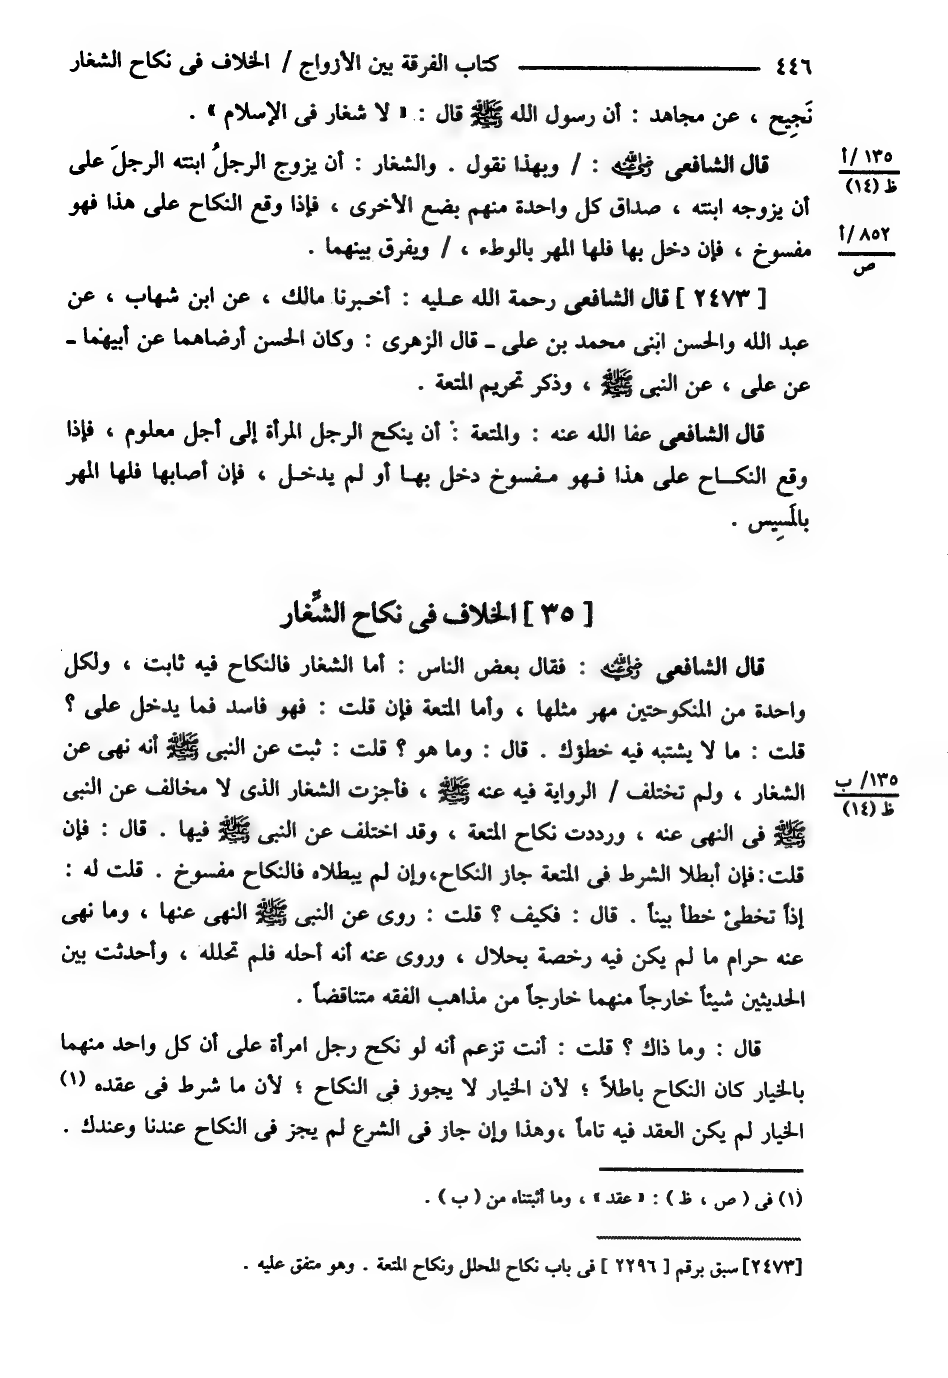 ٤٤٦ ــــــــــ كتاب الفرقة بين الأزواج / الخلاف فى نكاح الشغار
نَجِيح ، عن مجاهد : أن رسول الله ﷺ قال : « لا شغار فى الإسلام » .
قال الشافعى رضي الله عنه : / وبهذا نقول . والشغار : أن يزوج الرجلُ ابنته الرجلَ على
١٣٥ /أ
ظ (١٤)
أن يزوجه ابنته ، صداق كل واحدة منهم بضع الأخرى ، فإذا وقع النكاح على هذا فهو
مفسوخ ، فإن دخل بها فلها المهر بالوطء ، / ويفرق بينهما .
٨٥٢ /أ
ص
[ ٢٤٧٣ ] قال الشافعى رحمة الله عليه : أخبرنا مالك ، عن ابن شهاب ، عن
عبد الله والحسن ابنى محمد بن على ـ قال الزهرى : وكان الحسن أرضاهما عن أبيهما ـ
عن على ، عن النبى ﷺ ، وذكر تحريم المتعة .
قال الشافعى عفا الله عنه : والمتعة : أن ينكح الرجل المرأة إلى أجل معلوم ، فإذا
وقع النكــاح على هذا فـهو مـفسوخ دخل بهـا أو لم يدخـل ، فإن أصابها فلها المهر
بالمَسِيس .
[ ٣٥ ] الخلاف فى نكاح الشِّغار
قال الشافعى رضي الله عنه : فقال بعض الناس : أما الشغار فالنكاح فيه ثابت ، ولكل
واحدة من المنكوحتين مهر مثلها ، وأما المتعة فإن قلت : فهو فاسد فما يدخل على ؟
قلت : ما لا يشتبه فيه خطؤك . قال : وما هو ؟ قلت : ثبت عن النبى ﷺ أنه نهى عن
الشغار ، ولم تختلف / الرواية فيه عنه ﷺ ، فأجزت الشغار الذى لا مخالف عن النبى
١٣٥/ ب
ظ (١٤)
ﷺ فى النهى عنه ، ورددت نكاح المتعة ، وقد اختلف عن النبى ﷺ فيها . قال : فإن
قلت: فإن أبطلا الشرط فى المتعة جاز النكاح،وإن لم يبطلاه فالنكاح مفسوخ . قلت له :
إذاً تخطئ خطأ بيناً . قال : فكيف ؟ قلت : روى عن النبى ﷺ النهى عنها ، وما نهى
عنه حرام ما لم يكن فيه رخصة بحلال ، وروى عنه أنه أحله فلم تحلله ، وأحدثت بين
الحديثين شيئاً خارجاً منهما خارجاً من مذاهب الفقه متناقضاً .
قال : وما ذاك ؟ قلت : أنت تزعم أنه لو نكح رجل امرأة على أن كل واحد منهما
بالخيار كان النكاح باطلاً ؛ لأن الخيار لا يجوز فى النكاح ؛ لأن ما شرط فى عقده (١)
الخيار لم يكن العقد فيه تاماً ،وهذا وإن جاز فى الشرع لم يجز فى النكاح عندنا وعندك .
(١) فى ( ص ، ظ ) : « عقد » ، وما أثبتناه من ( ب ) .
[٢٤٧٣] سبق برقم [ ٢٢٩٦ ] فى باب نكاح المحلل ونكاح المتعة . وهو متفق عليه .